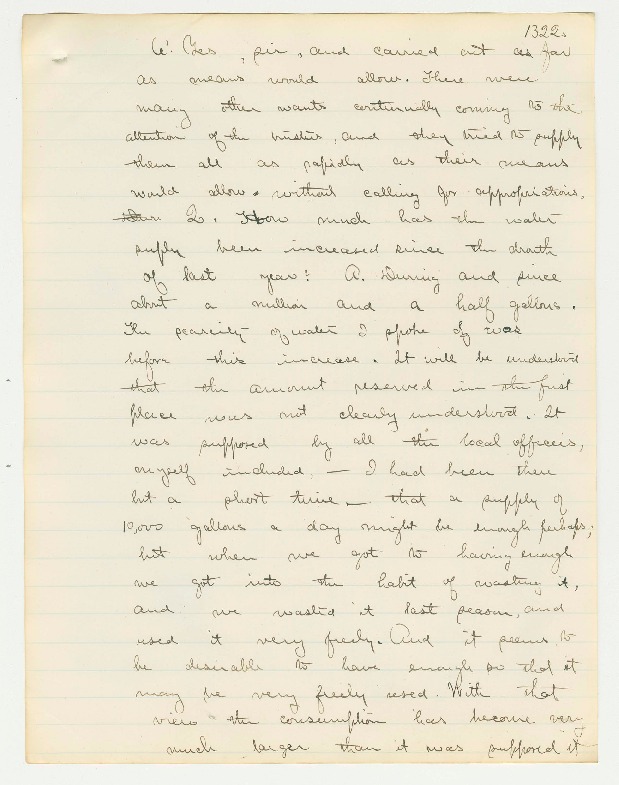 1322.
A. Yes, sir, and carried out as far
as means would allow. There were
many other wants continually coming to the
attention of the trustees, and they tried to supply
them all as rapidly as their means
would allow without calling for appropriations.
Q. How much has the water
suply been increased since the drouth
of last year? A. During and since
about a million and a half gallons.
The scarcity of water I spoke of was
before this increase. It will be understood
that the amount reserved in the first
place was not clearly understood. It
was supposed by all the local officers,
myself included, — I had been there
but a short time — that a supply of
10,000 gallons a day might be enough perhaps;
but when we got to having enough
we got into the habit of wasting it,
and we wasted it last season, and
used it very freely. And it seems to
be desirable to have enough so that it
may be very freely used. With that
view the consumption has become very
much larger than it was supposed it